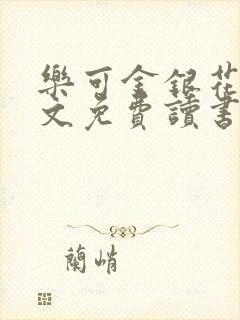 樂可金銀花
文免費讀書
蘭峭